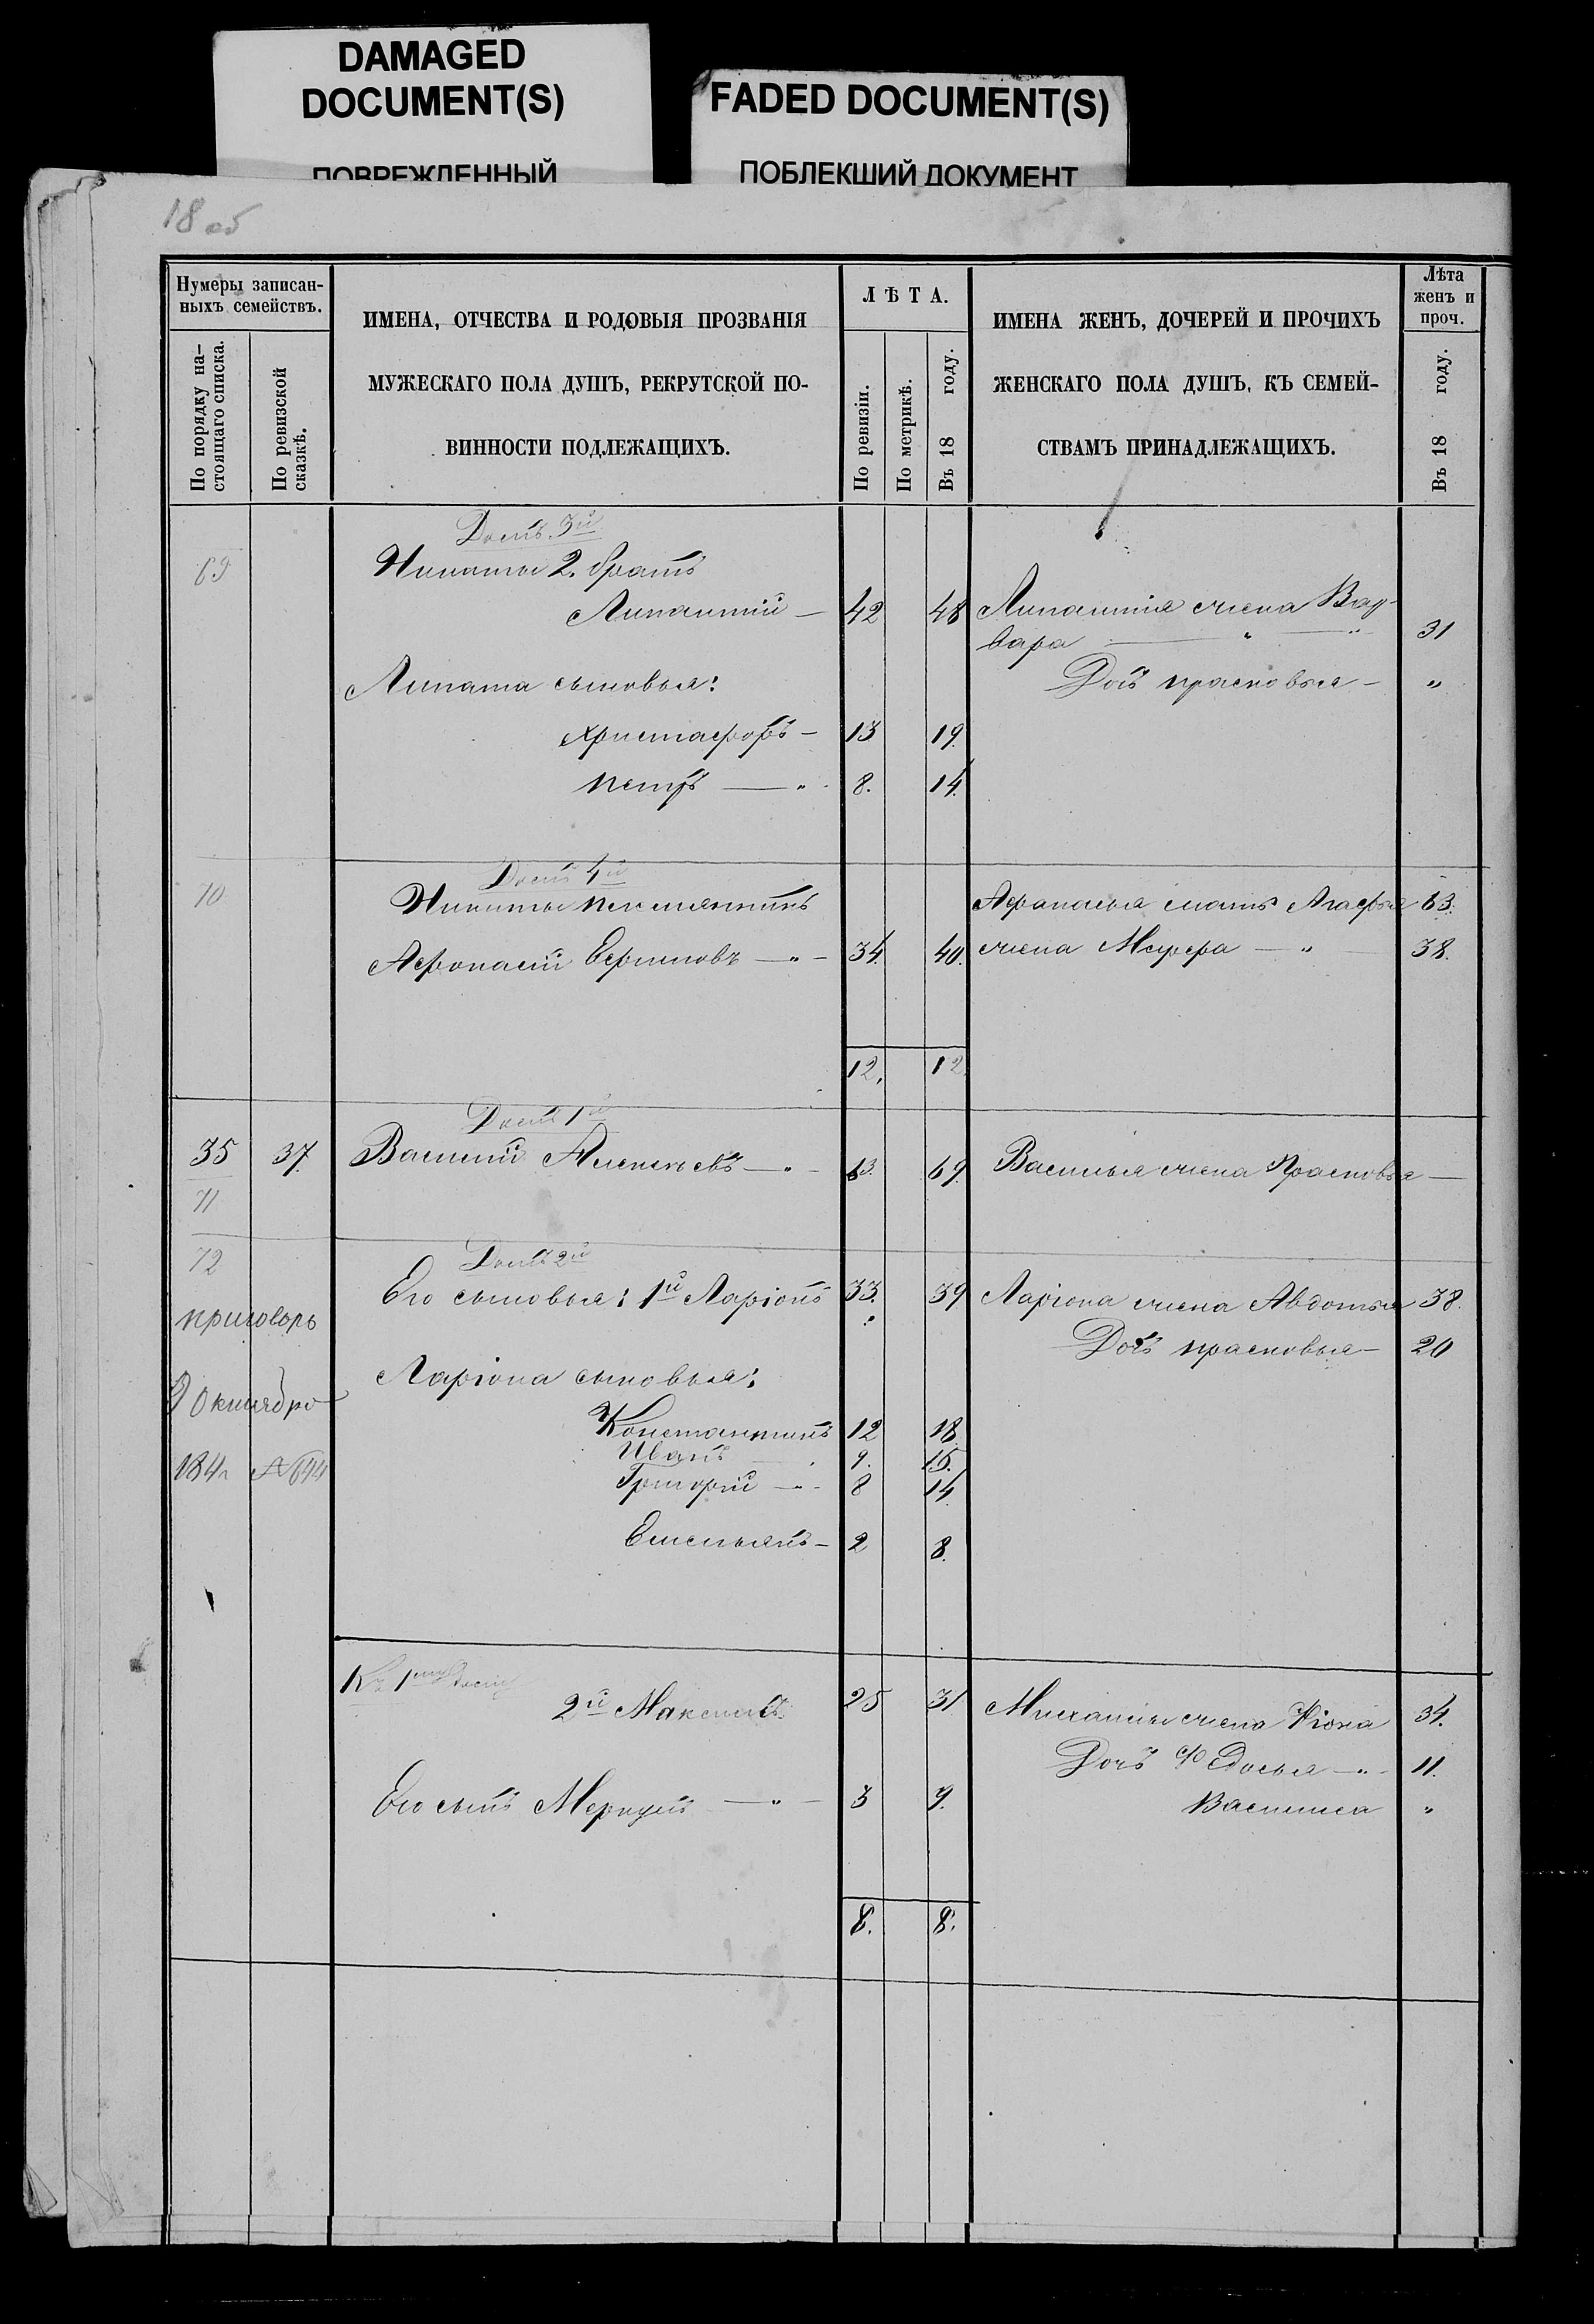 DAMAGED
DOCUMENT(S)
ПОВРЕЖДЕННЫЙ
FADED DOCUMENT(S)
ПОБЛЕКШИЙ ДОКУМЕНТ
18 об
Нумеры записан-
ныхъ семействъ.
По порядку на-
стоящаго списка.
По ревизской
сказкѣ.
ИМЕНА, ОТЧЕСТВА И РОДОВЫЯ ПРОЗВАНІЯ
МУЖЕСКАГО ПОЛА ДУШЪ, РЕКРУТСКОЙ ПО-
ВИННОСТИ ПОДЛЕЖАЩИХЪ.
Л Ѣ Т А.
По ревизіи.
По метрикѣ.
Въ 18 году.
ИМЕНА ЖЕНЪ, ДОЧЕРЕЙ И ПРОЧИХЪ
ЖЕНСКАГО ПОЛА ДУШЪ, КЪ СЕМЕЙ-
СТВАМЪ ПРИНАДЛЕЖАЩИХЪ.
Лѣта
женъ и
проч.
Въ 18 году.
Домъ 3й
69 Никиты 2. братъ
42 48 жена
вара — " — " 31
сыновья: Дочь прасковья — "
Христафоръ — 13 19.
петръ — " 8. 14.
Домъ 4й
70 Никиты племянникъ Афонасья мать Агафья 63.
Афонасій Ефимовъ — " — 34. 40. жена — " 38.
12. 12.
Домъ 1й
35 37. Василій Алексѣевъ — " — 63. 69. Василья жена Прасковья —
71
72 Домъ 2й
Его сыновья: 1й Ларіонъ 33. 39 Ларіона жена Авдотья 38.
приговоръ Дочь прасковья — 20
Ларіона сыновья:
9 Октября
Константинъ 12 18
Иванъ 9. 15.
184 № 644 Григорій — " 8 14.
Емельянъ — 2 8.
Къ 1му дому
2й Максимъ 25 31 жена 34.
Дочь Федосья — " 11.
Его сынъ Меркулъ — " — 3 9. Василиса "
8. 8.